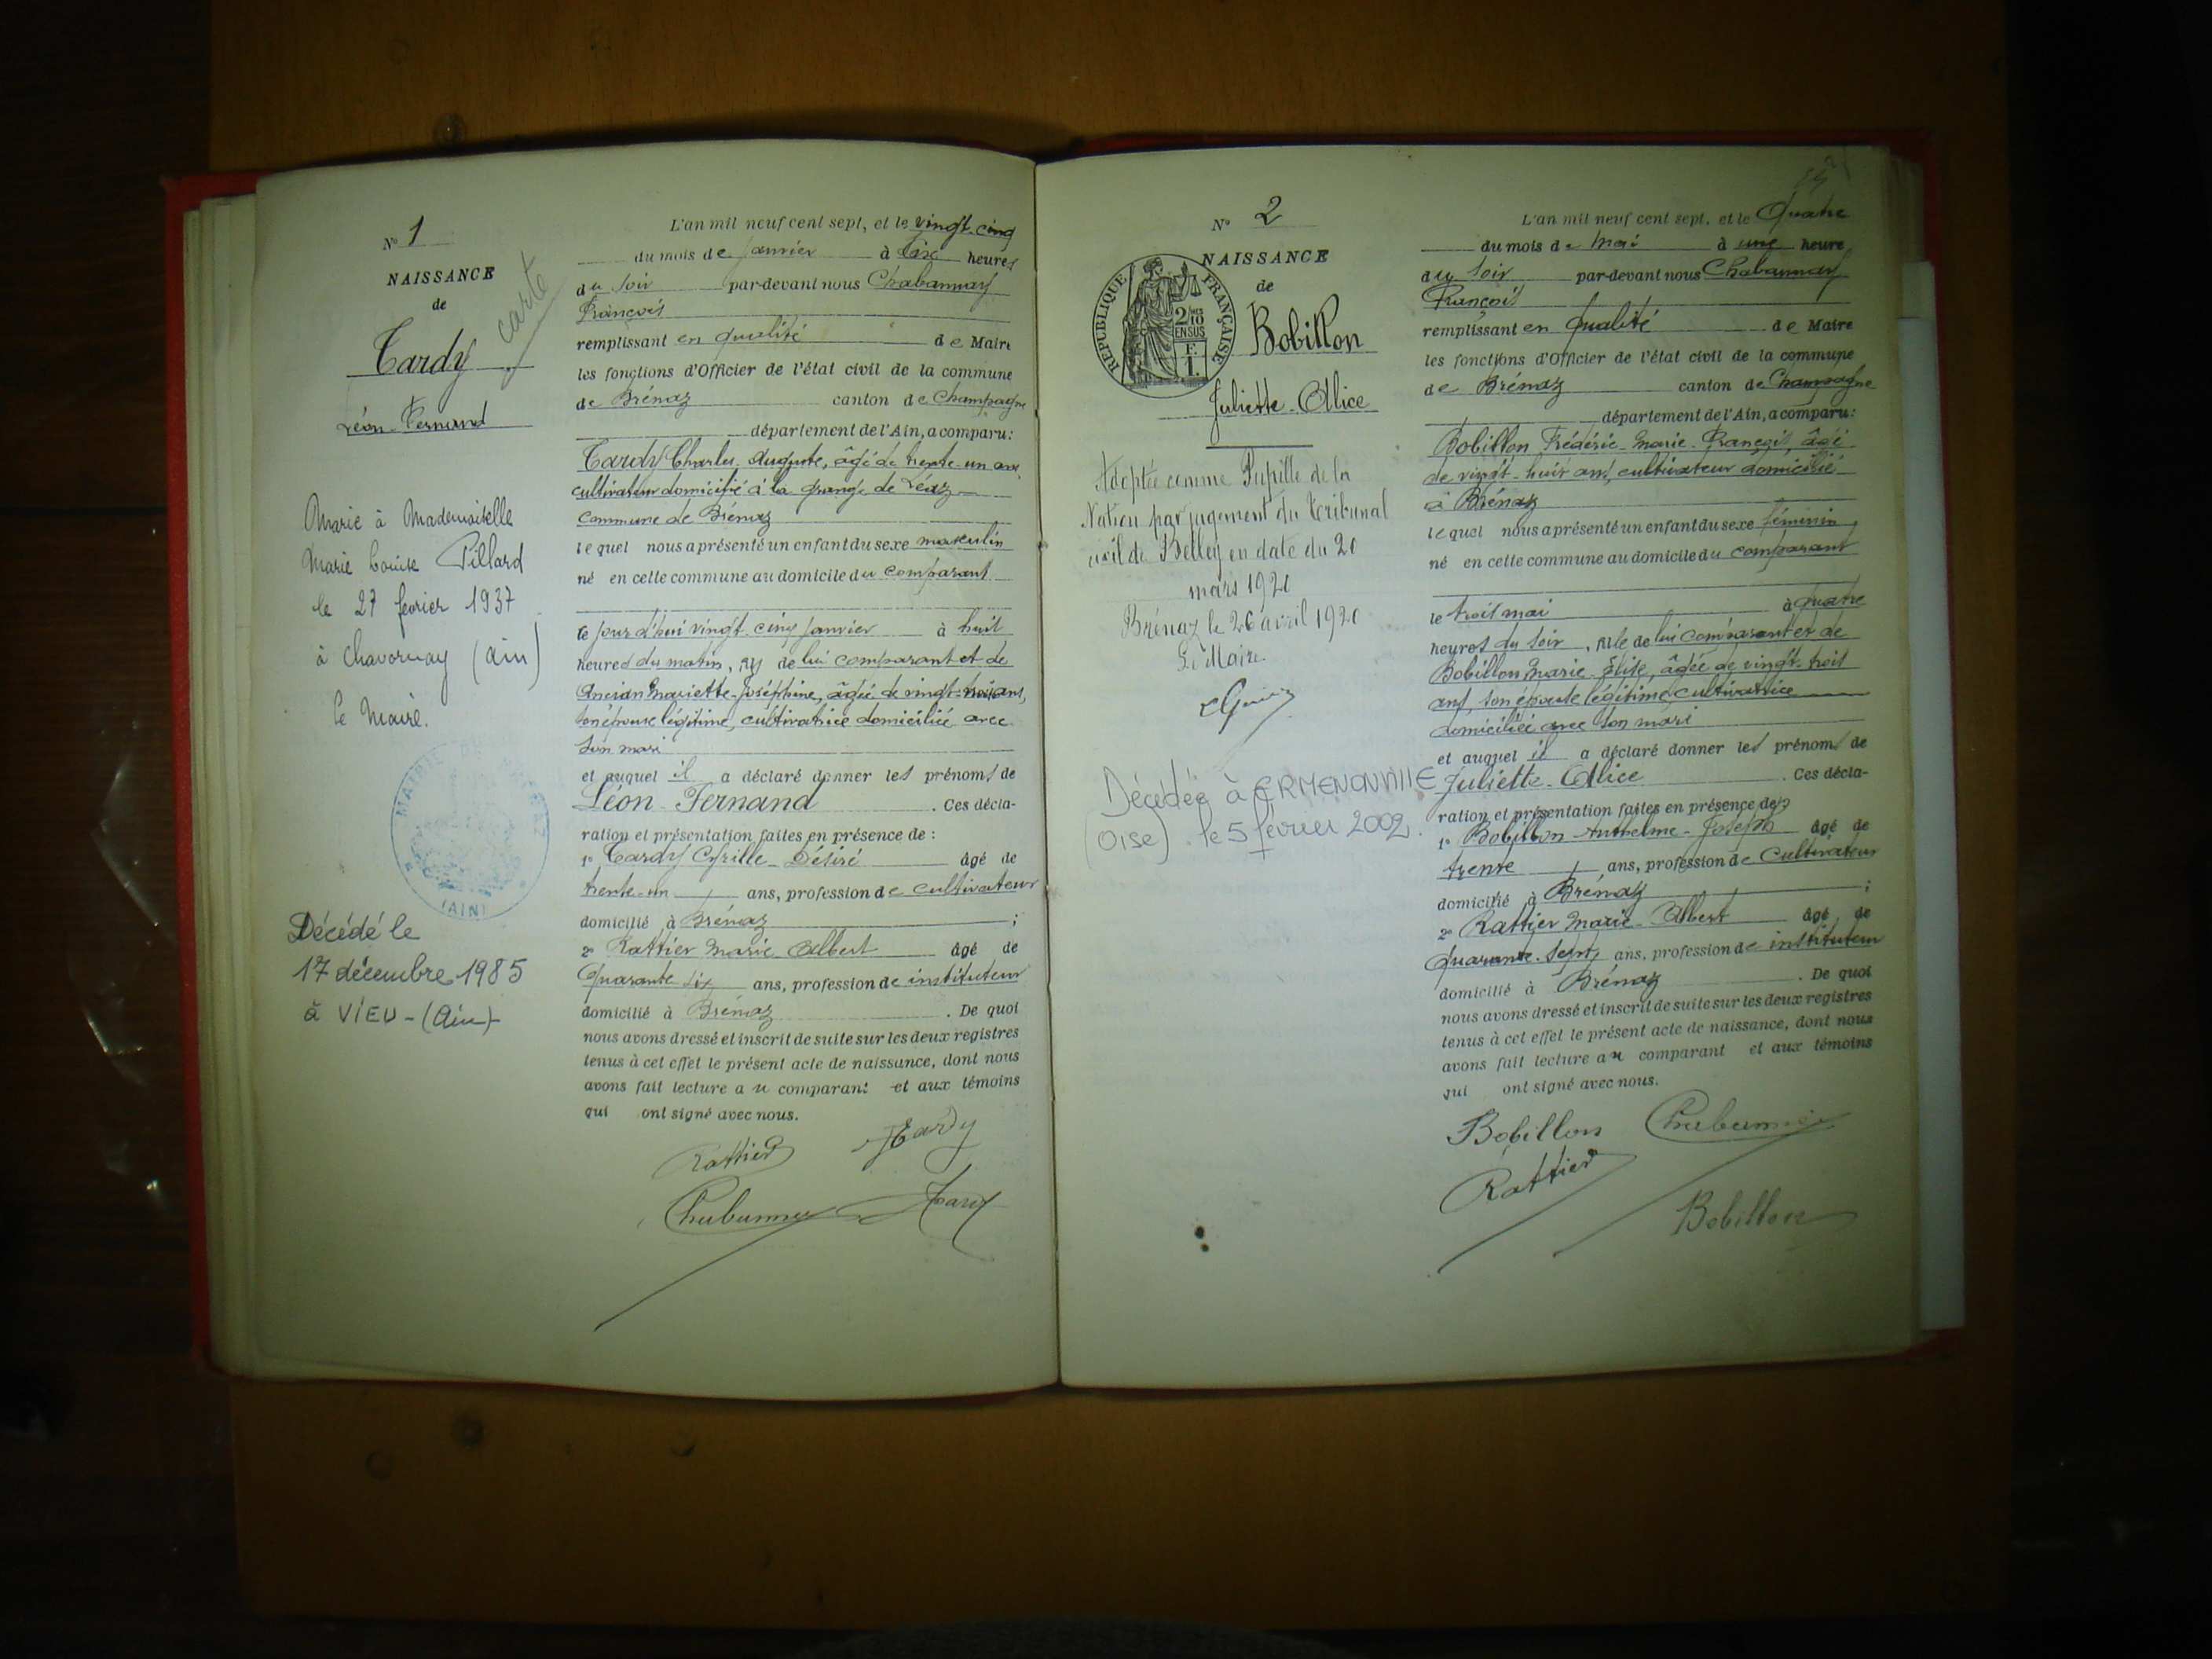 N° 1
NAISSANCE
de
Tardy
Léon-Fernand
carte
Marié à Mademoiselle
Marie Louise Pillard
le 27 février 1937
à Chavornay (Ain)
le Maire.
MAIRIE DE BRÉNAZ
(AIN)
Décédé le
17 décembre 1985
à VIEU - (Ain) -
L'an mil neuf cent sept, et le vingt-cinq
du mois de Janvier à six heures
du soir par-devant nous Chabannay
François
remplissant en qualité de Maire
les fonctions d'Officier de l'état civil de la commune
de Brénaz canton de Champagne
département de l'Ain, a comparu :
Tardy Charles-Auguste, âgé de trente-un ans
cultivateur domicilié à la grange de Léaz
commune de Brénaz
lequel nous a présenté un enfant du sexe masculin
né en cette commune au domicile du comparant
le jour d'hui vingt-cinq janvier à huit
heures du matin, de lui comparant et de
Ancian Mariette-Joséphine, âgée de vingt-trois ans,
son épouse légitime, cultivatrice domiciliée avec
son mari
et auquel il a déclaré donner les prénoms de
Léon-Fernand . Ces décla-
ration et présentation faites en présence de :
1° Tardy Cyrille-Désiré âgé de
trente-un ans, profession de cultivateur
domicilié à Brénaz ;
2° Rattier Marie-Albert âgé de
Quarante-six ans, profession de instituteur
domicilié à Brénaz . De quoi
nous avons dressé et inscrit de suite sur les deux registres
tenus à cet effet le présent acte de naissance, dont nous
avons fait lecture au comparant et aux témoins
qui ont signé avec nous.
Rattier Tardy
Chabannay Tardy
N° 2
NAISSANCE
de
Bobillon
Juliette-Alice
REPUBLIQUE FRANÇAISE
2/10
EN SUS
F.
1.
Adoptée comme Pupille de la
Nation par jugement du tribunal
civil de Belley en date du 20
mars 1920
Brénaz le 26 avril 1920
Le Maire
Décédée à ERMENONVILLE
(Oise) le 5 février 2002.
L'an mil neuf cent sept, et le Quatre
du mois de Mai à une heure
du soir par-devant nous Chabannay
François
remplissant en qualité de Maire
les fonctions d'Officier de l'état civil de la commune
de Brénaz canton de Champagne
département de l'Ain, a comparu :
Bobillon Frédéric-Marie-François, âgé
de vingt-huit ans, cultivateur domicilié
à Brénaz
lequel nous a présenté un enfant du sexe féminin
né en cette commune au domicile du comparant
le trois mai à quatre
heures du soir, fille de lui comparant et de
Bobillon Marie-Élise, âgée de vingt-trois
ans, son épouse légitime, cultivatrice
domiciliée avec son mari
et auquel il a déclaré donner les prénoms de
Juliette-Alice . Ces décla-
ration et présentation faites en présence de :
1° Bobillon Anthelme-Joseph âgé de
trente ans, profession de Cultivateur
domicilié à Brénaz ;
2° Rattier Marie-Albert âgé de
Quarante-sept ans, profession de instituteur
domicilié à Brénaz . De quoi
nous avons dressé et inscrit de suite sur les deux registres
tenus à cet effet le présent acte de naissance, dont nous
avons fait lecture au comparant et aux témoins
qui ont signé avec nous.
Bobillon Chabannay
Rattier
Bobillon